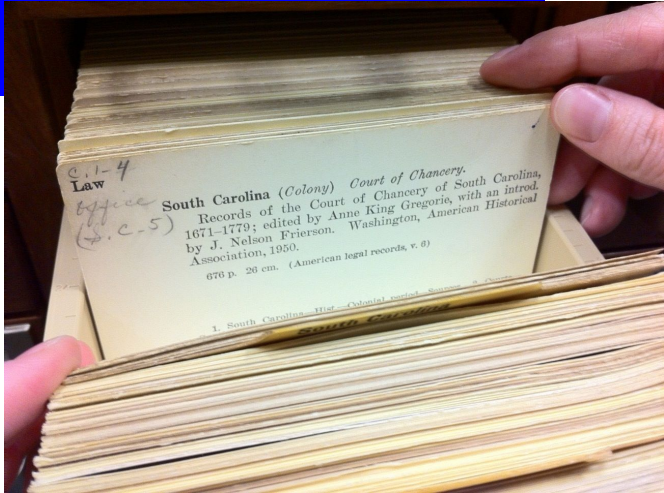 C.1-4
Law
office
(S.C-5)
South Carolina (Colony) Court of Chancery.
Records of the Court of Chancery of South Carolina,
1671–1779; edited by Anne King Gregorie, with an introd.
by J. Nelson Frierson. Washington, American Historical
Association, 1950.
676 p. 26 cm. (American legal records, v. 6)
1. South Carolina—Hist.—Colonial period—Sources.
South Carolina